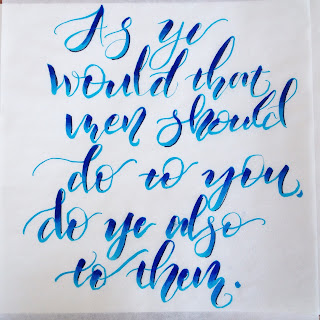 As ye
would that
men should
do to you,
do ye also
to them.